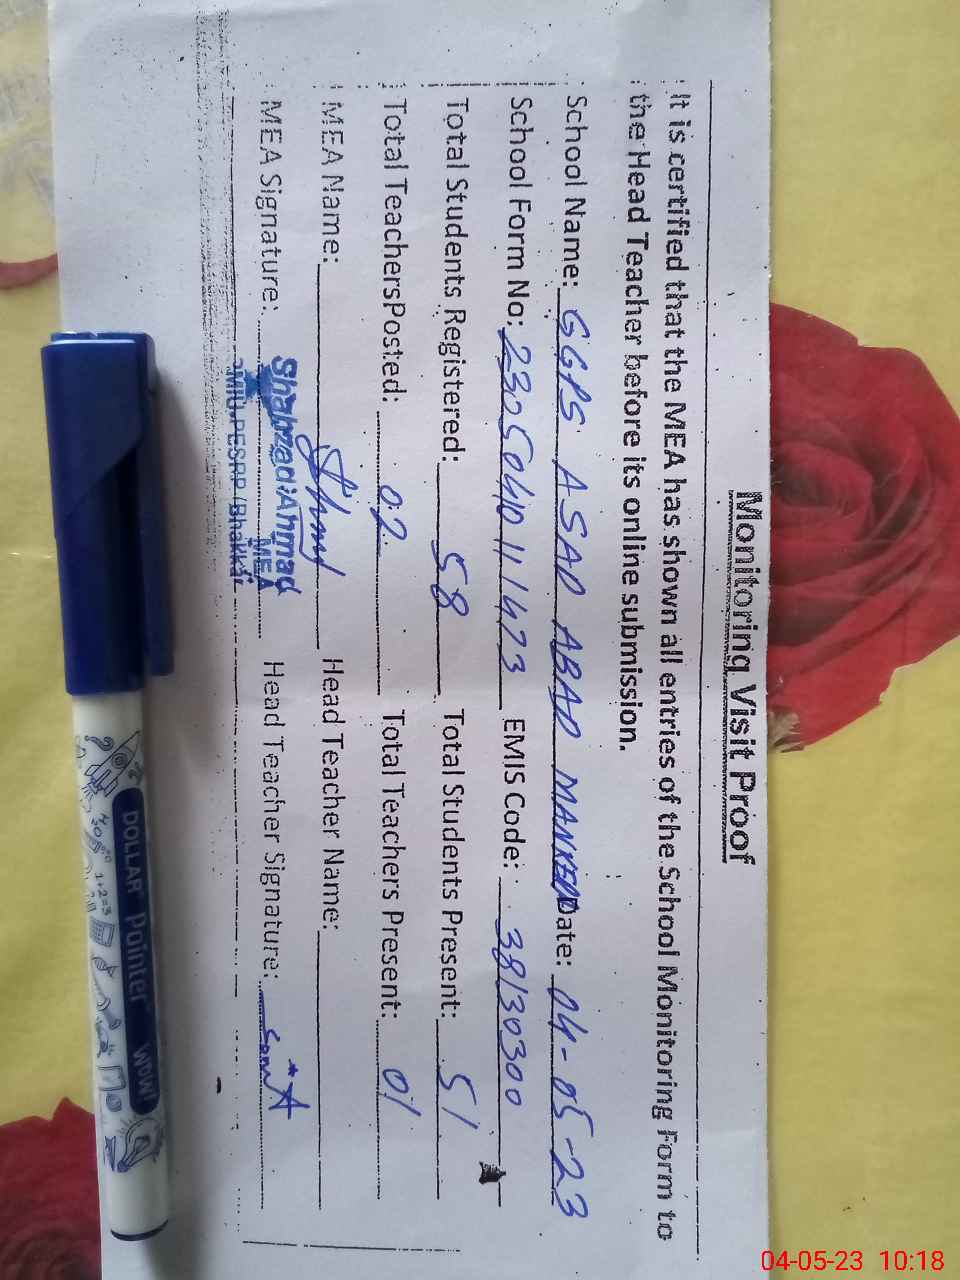 Monitoring Visit Proof
It is certified that the MEA has shown all entries of the School Monitoring Form to
the Head Teacher before its online submission.
School Name: GGPS ASAD ABAD MANKERA Date: 04-05-23
School Form No: 23050410111473 EMIS Code: 38130300
Total Students Registered: 58 Total Students Present: 51
Total TeachersPosted: 02 Total Teachers Present: 01
MEA Name: Head Teacher Name:
MEA Signature: Shahzad Ahmad Head Teacher Signature:
MEA
DMIU,PESRP (Bhakkar
DOLLAR Pointer WOW!
1+2=3
04-05-23 10:18